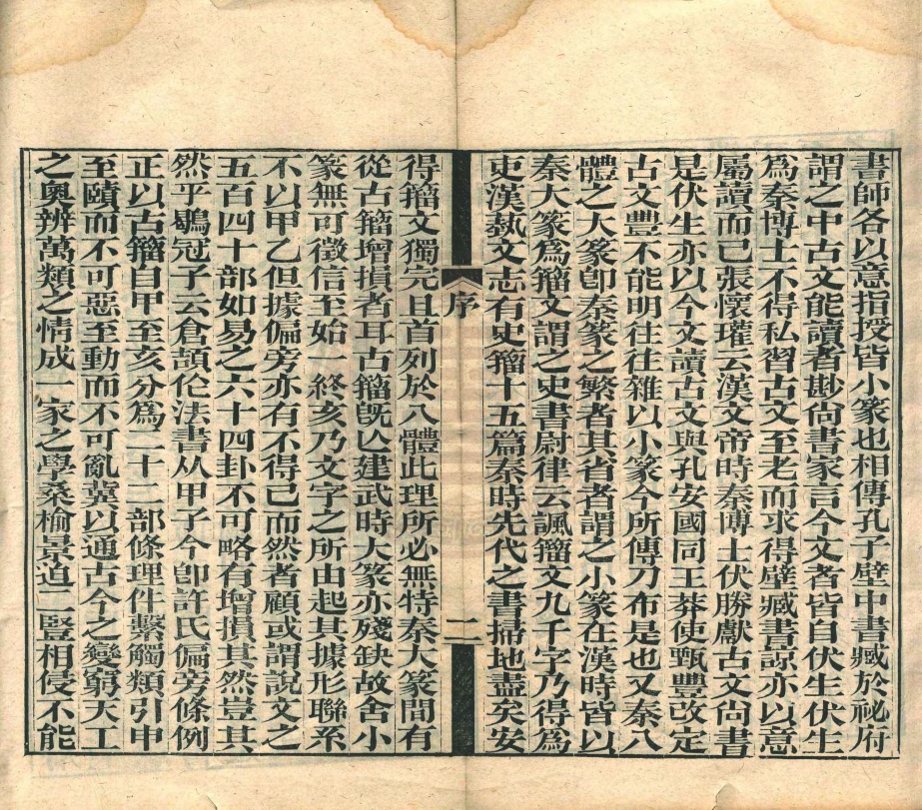 書師各以意指授皆小篆也相傳孔子壁中書藏於祕府
謂之中古文能讀者尟尙書家言今文者皆自伏生伏生
爲秦博士不得私習古文至老而求得壁藏書諒亦以意
屬讀而已張懷瓘云漢文帝時秦博士伏勝獻古文尙書
是伏生亦以今文讀古文與孔安國同王莽使甄豐改定
古文豐不能明往往雜以小篆今所傳刀布是也又秦八
體之大篆卽秦篆之繁者其省者謂之小篆在漢時皆以
秦大篆爲籀文謂之史書尉律云諷籀文九千字乃得爲
吏漢埶文志有史籀十五篇秦時先代之書掃地盡矣安
序
二
得籀文獨完且首列於八體此理所必無特秦大篆閒有
從古籀增損者耳古籀旣亾建武時大篆亦殘缺故舍小
篆無可徵信至始一終亥乃文字之所由起其據形聯系
不以甲乙但據偏旁亦有不得已而然者顧或謂說文之
五百四十部如易之六十四卦不可略有增損其然豈其
然乎鶡冠子云倉頡作法書从甲子今卽許氏偏旁條例
正以古籀自甲至亥分爲二十二部條理件繫觸類引申
至賾而不可惡至動而不可亂冀以通古今之變窮天工
之奧辨萬類之情成一家之學桑榆景迫二豎相侵不能